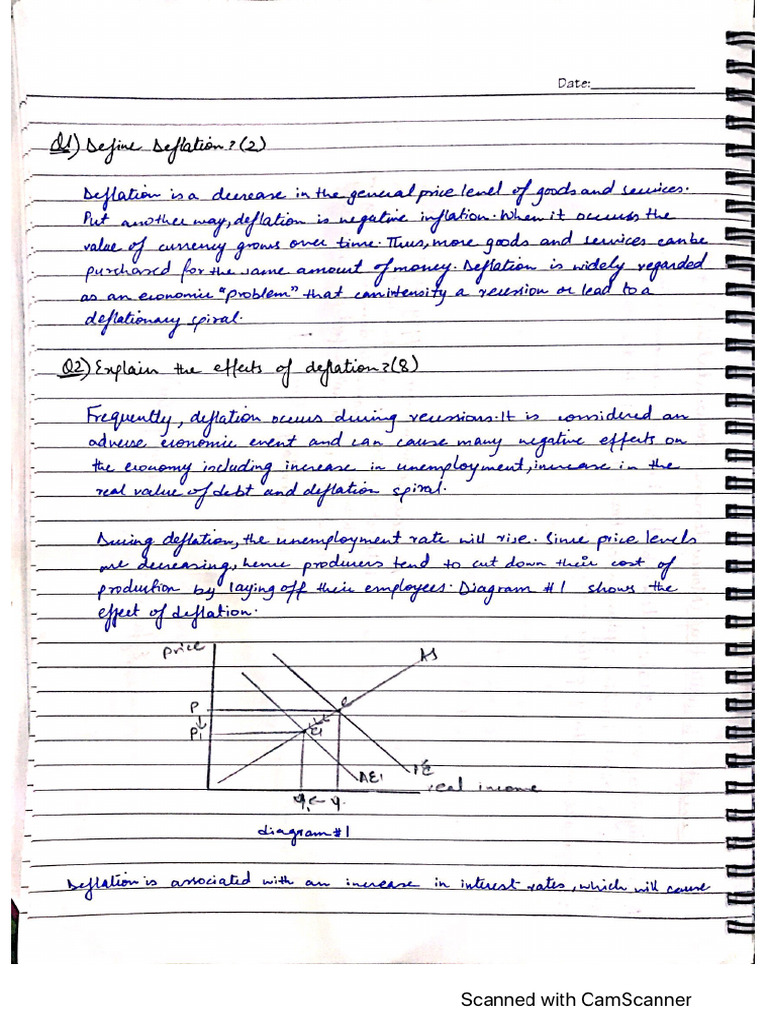 Date:
Q1) Define Deflation? (2)
Deflation is a decrease in the general price level of goods and services.
Put another way, deflation is negative inflation. When it occurs the
value of currency grows over time. Thus, more goods and services can be
purchased for the same amount of money. Deflation is widely regarded
as an economic "problem" that can intensity a recession or lead to a
deflationary spiral.
Q2) Explain the effects of deflation? (8)
Frequently, deflation occurs during recessions. It is considered an
adverse economic event and can cause many negative effects on
the economy including increase in unemployment, increase in the
real value of debt and deflation spiral.
During deflation, the unemployment rate will rise. Since price levels
are decreasing, hence producers tend to cut down their cost of
production by laying off their employees. Diagram #1 shows the
effect of deflation.
Price
AS
P
e
P1
e1
AE1
AE
real income
q1 ← q
diagram #1
Deflation is associated with an increase in interest rates, which will cause
Scanned with CamScanner